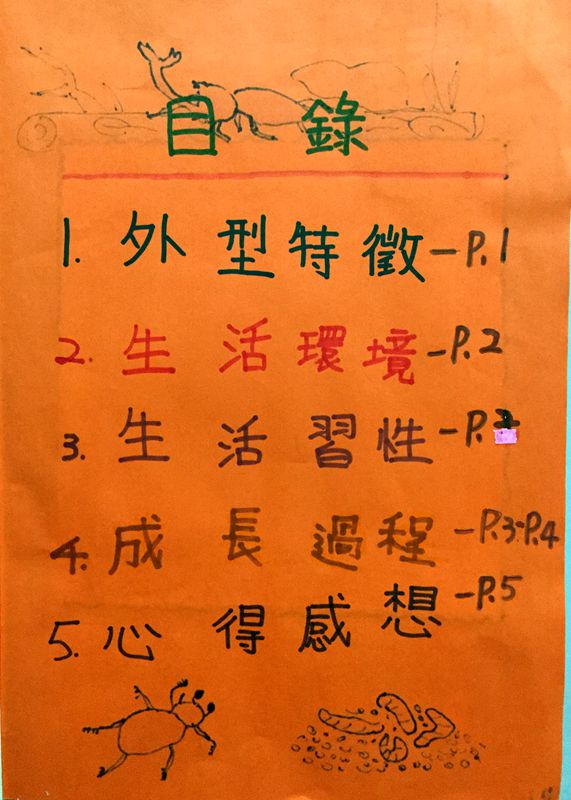 目錄
1. 外型特徵-P.1
2. 生活環境-P.2
3. 生活習性-P.
4. 成長過程-P.3-P.4
5. 心得感想-P.5